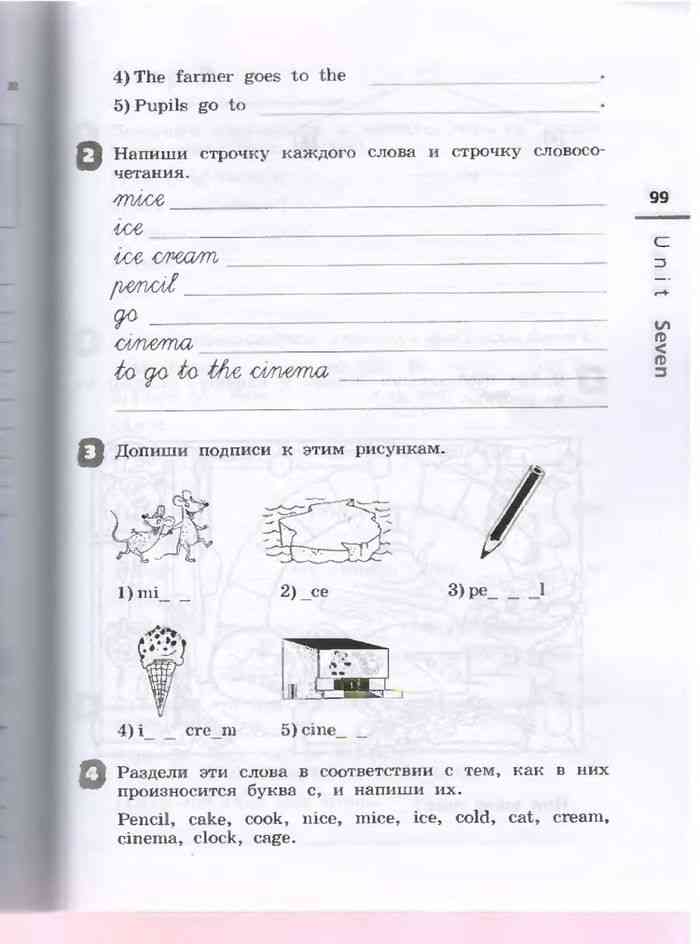 4) The farmer goes to the ____________.
5) Pupils go to ____________.
2 Напиши строчку каждого слова и строчку словосо-
четания.
mice
ice
ice cream
pencil
go
cinema
to go to the cinema
99
Unit Seven
3 Допиши подписи к этим рисункам.
1) mi_ _ 2) _ce 3) pe_ _ _l
4) i_ _ cre_m 5) cine_ _
4 Раздели эти слова в соответствии с тем, как в них
произносится буква c, и напиши их.
Pencil, cake, cook, nice, mice, ice, cold, cat, cream,
cinema, clock, cage.